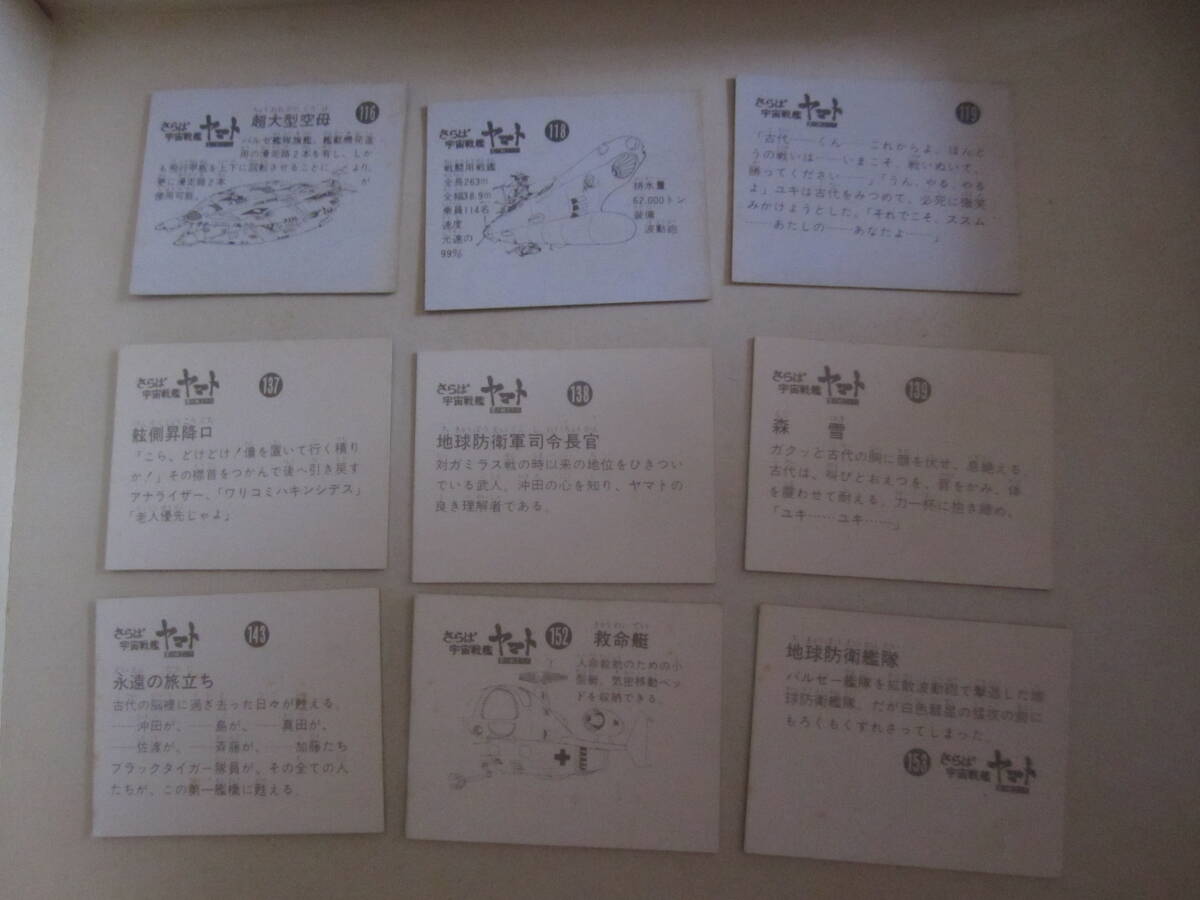 さらば
宇宙戦艦
ヤマト
116
超大型空母
バルゼ艦隊旗艦、艦載機発進
用の滑走路2本を有し、しか
も飛行甲板を上下に回転させることにより、
更に滑走路2本が
使用可能。
さらば
宇宙戦艦
ヤマト
118
戦闘用戦艦
全長263m
全幅38.9m
乗員114名
速度
光速の
99%
排水量
62,000トン
装備
波動砲
さらば
宇宙戦艦
ヤマト
119
「古代……くん……これからよ、ほんと
うの戦いは……いまこそ、戦いぬいて、
勝ってください……」「うん、やる、やる
よ」ユキは古代をみつめて、必死に微笑
みかけようとした。「それでこそ、ススム
……あたしの……あなたよ……」
さらば
宇宙戦艦
ヤマト
137
舷側昇降口
「こら、どけどけ！儂を置いて行く積り
か！」その襟首をつかんで後へ引き戻す
アナライザー、「ワリコミハキンシデス」
「老人優先じゃよ」
さらば
宇宙戦艦
ヤマト
138
地球防衛軍司令長官
対ガミラス戦の時以来の地位をひきつい
でいる武人。沖田の心を知り、ヤマトの
良き理解者である。
さらば
宇宙戦艦
ヤマト
139
森 雪
ガクッと古代の胸に頭を伏せ、息絶える
古代は、叫びとおえつを、唇をかみ、体
を震わせて耐える。力一杯に抱き締め、
「ユキ……ユキ……」
さらば
宇宙戦艦
ヤマト
143
永遠の旅立ち
古代の脳裡に過ぎ去った日々が甦える。
……沖田が、……島が、……真田が、
……佐渡が、……斉藤が、……加藤たち
ブラックタイガー隊員が、その全ての人
たちが、この第一艦橋に甦える。
さらば
宇宙戦艦
ヤマト
152
救命艇
人命救助のための小
型艇、気密移動ベッ
ドを収納できる。
地球防衛艦隊
バルゼー艦隊を拡散波動砲で撃退した地
球防衛艦隊。だが白色彗星の猛攻の前に
もろくもくずれさってしまった。
153
さらば
宇宙戦艦
ヤマト